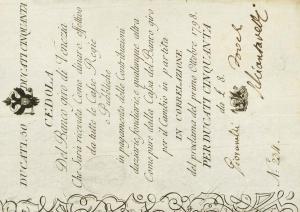 DUCATI. 50. DUCATI CINQUANTA
CEDOLA
Del Banco giro di Venezia
Che sarà ricevuta Come dinaro effettivo
da tutte le Casse Regie
e Pubbliche
in pagamento delle Contribuzioni
daziarie, fondiarie, e qualunque altra
Come pure dalla Cassa del Banco giro
per il Cambio in partita
IN CORRELAZIONE
del proclama del primo Ottobre 1798.
PER DUCATI CINQUANTA
da L 8.
Giovanelli
N.